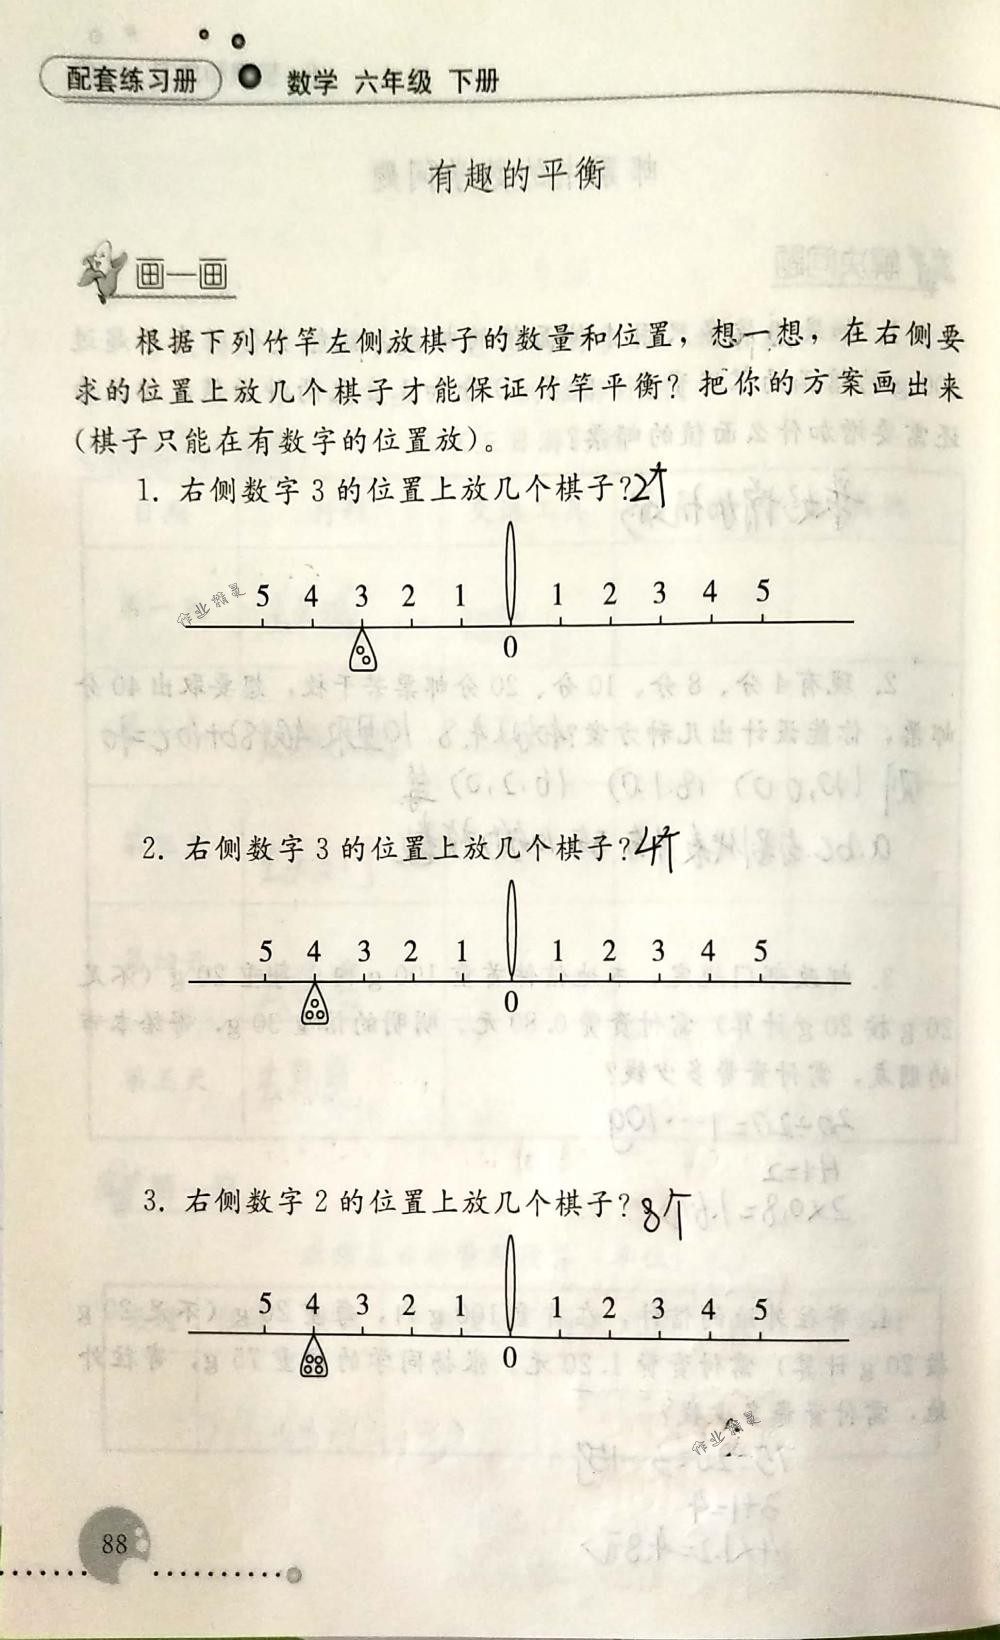 配套练习册 数学 六年级 下册
有趣的平衡
画一画
根据下列竹竿左侧放棋子的数量和位置，想一想，在右侧要
求的位置上放几个棋子才能保证竹竿平衡？把你的方案画出来
(棋子只能在有数字的位置放)。
1. 右侧数字3的位置上放几个棋子？2个
5 4 3 2 1 1 2 3 4 5
0
2. 右侧数字3的位置上放几个棋子？4个
5 4 3 2 1 1 2 3 4 5
0
3. 右侧数字2的位置上放几个棋子？8个
5 4 3 2 1 1 2 3 4 5
0
88